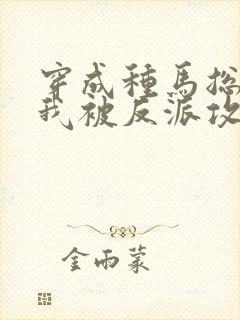 穿成種馬
我被反派攻
金雨蒙